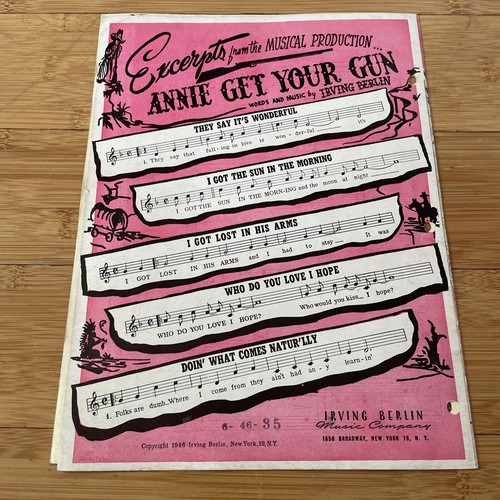 Excerpts from the MUSICAL PRODUCTION...
ANNIE GET YOUR GUN
WORDS AND MUSIC by IRVING BERLIN
THEY SAY IT'S WONDERFUL
1. They say that fall-ing in love is won-der-ful it's
I GOT THE SUN IN THE MORNING
I GOT THE SUN IN THE MORN-ING and the moon at night
I GOT LOST IN HIS ARMS
I GOT LOST IN HIS ARMS and I had to stay It was
WHO DO YOU LOVE I HOPE
WHO DO YOU LOVE I HOPE? Who would you kiss I hope?
DOIN' WHAT COMES NATUR'LLY
1. Folks are dumb Where I come from they ain't had an-y learn-in'
6-46-35
Copyright 1946 Irving Berlin, New York, 19, N.Y.
IRVING BERLIN
Music Company
1650 BROADWAY, NEW YORK 19, N. Y.